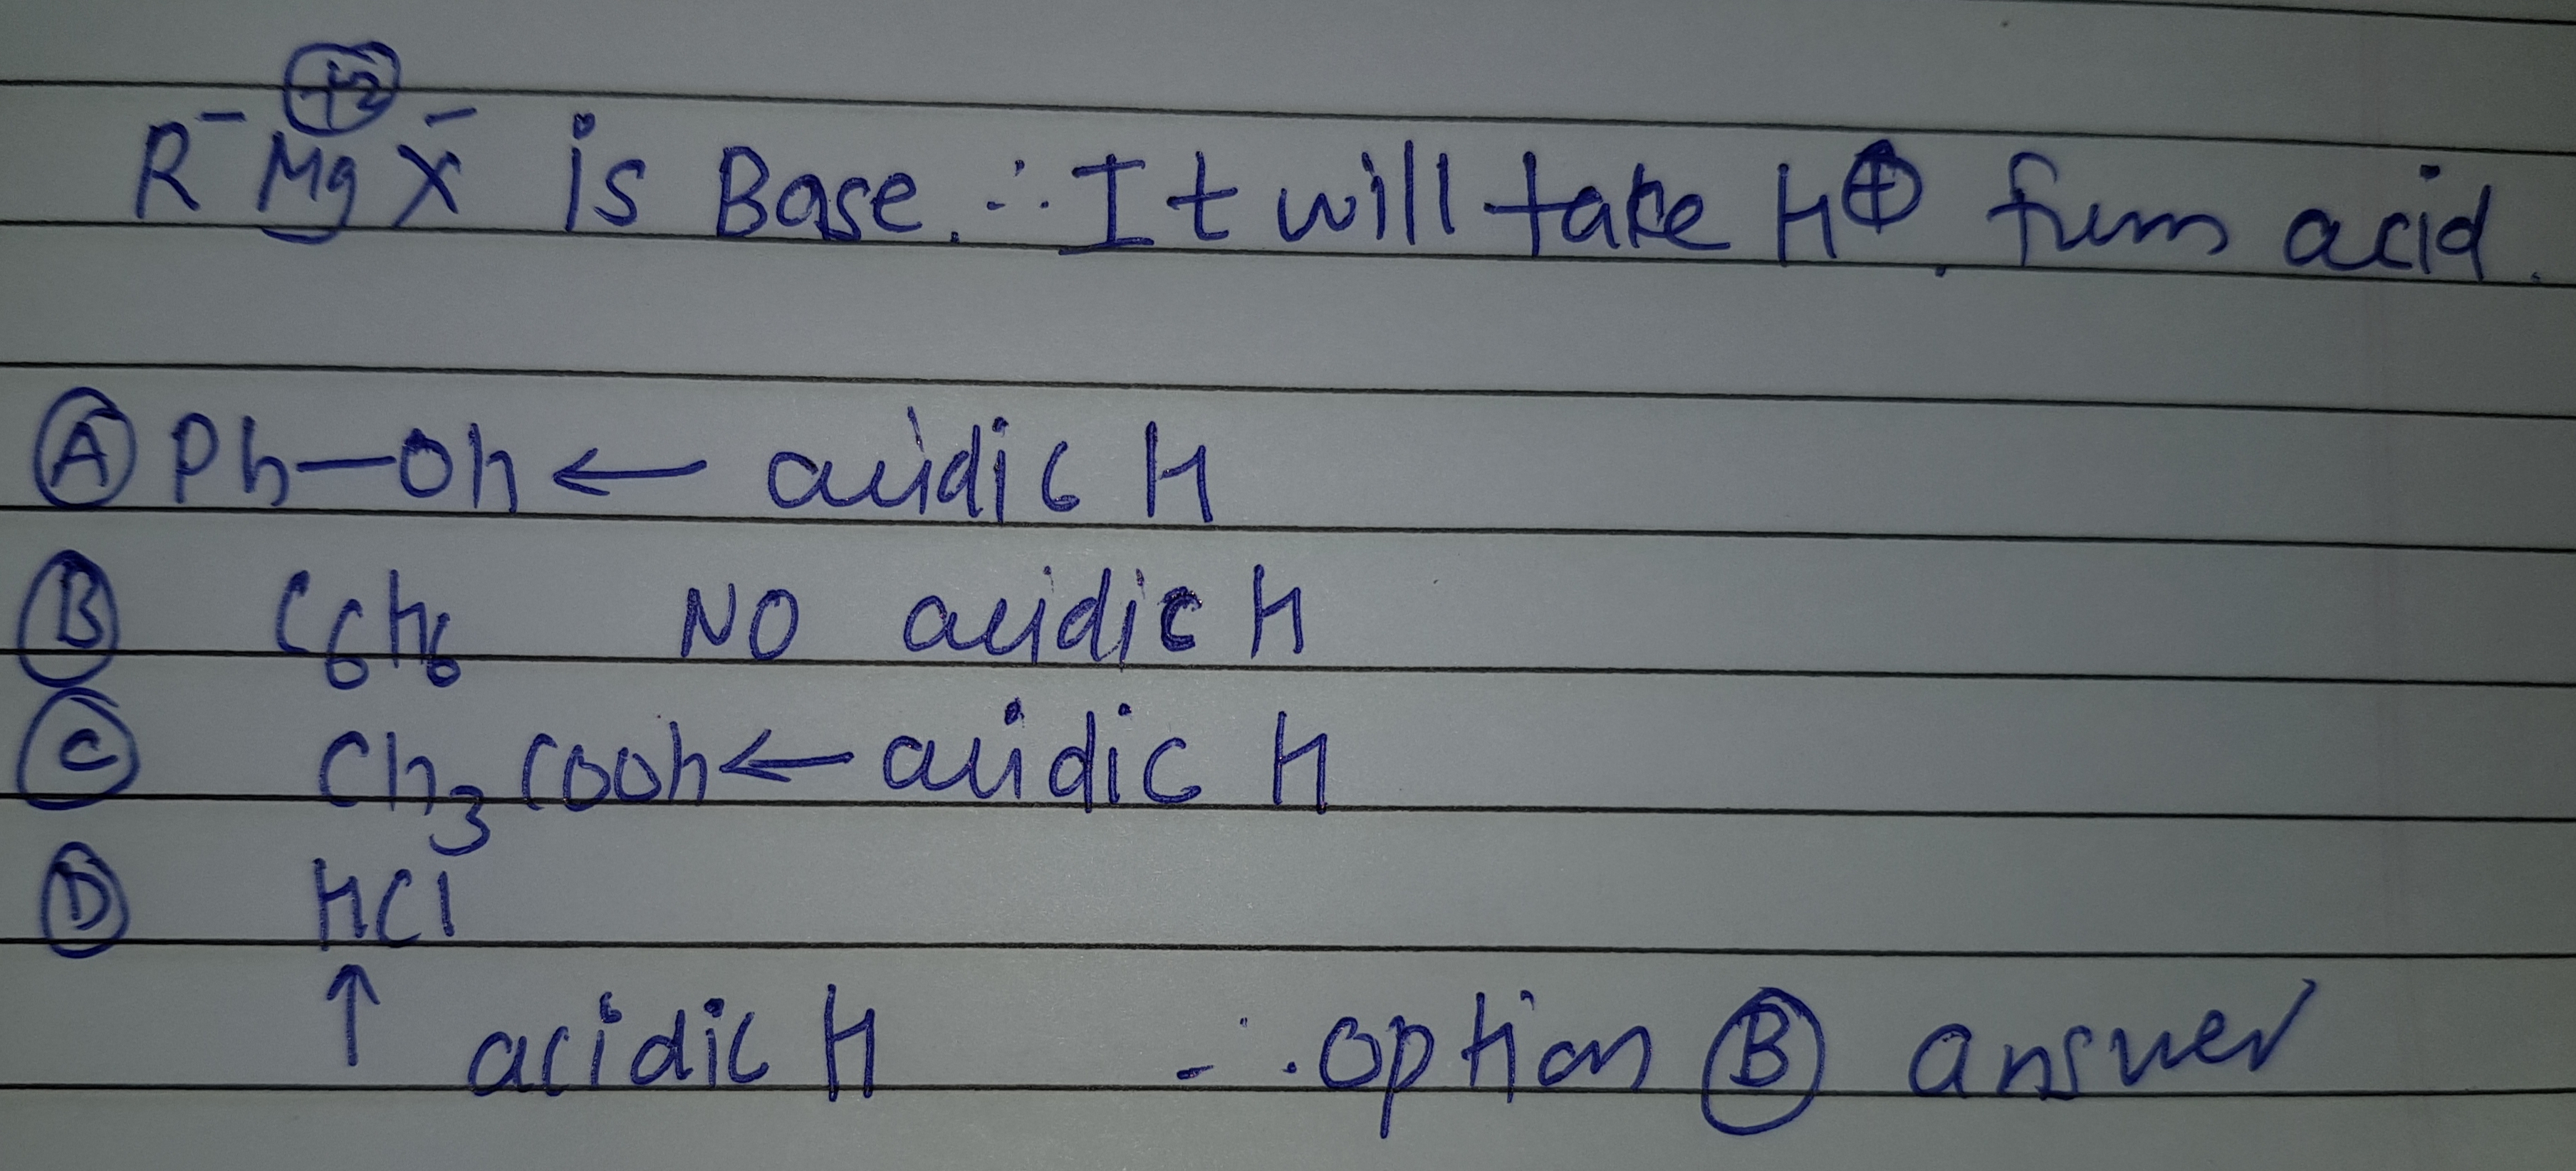 +2
R⁻ Mg X⁻ is Base. ∴ It will take H⊕ from acid.
A Ph—Oh ← acidic H
B C₆h₆ NO acidic H
C Ch₃ cooh ← acidic H
D HCl
↑ acidic H ∴ option B answer